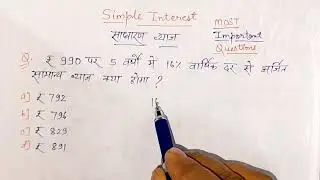 Simple Interest
साधारण ब्याज
MOST
Important
Questions
Q. ₹ 990 पर 5 वर्षों में 16% वार्षिक दर से अर्जित
सामान्य ब्याज क्या होगा ?
a) ₹ 792
b) ₹ 796
c) ₹ 829
d) ₹ 891